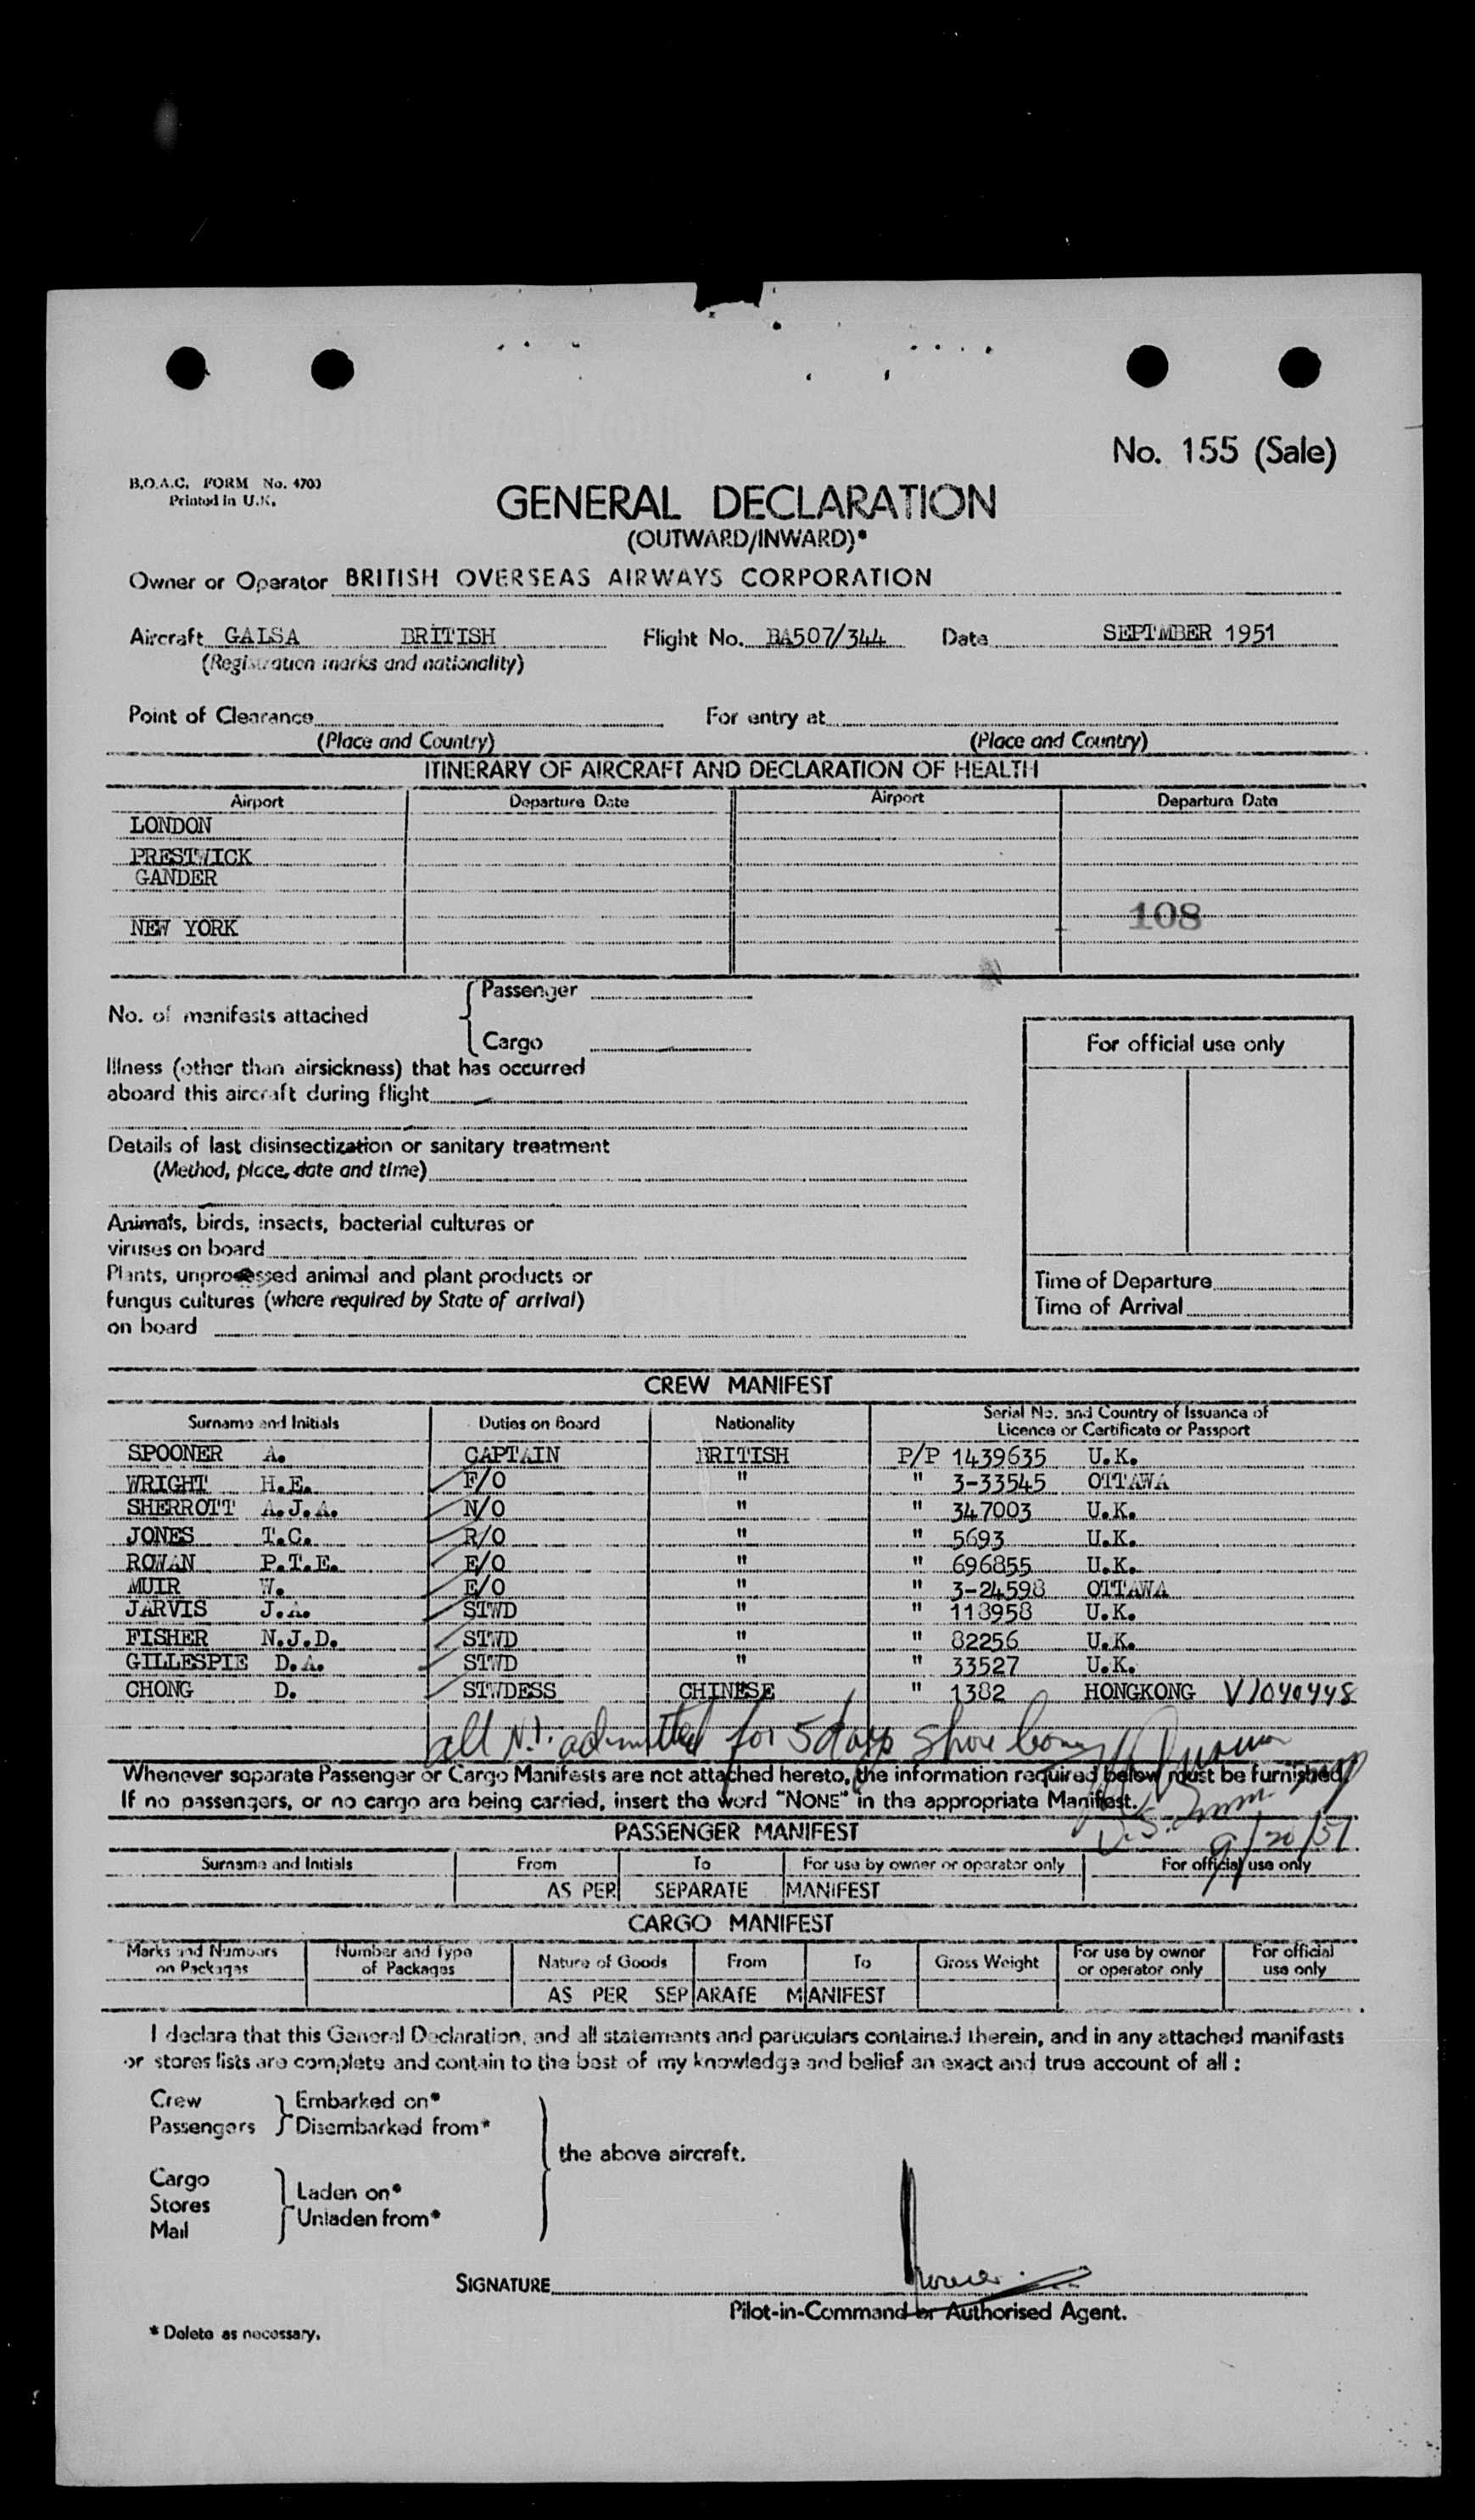 No. 155 (Sale)
B.O.A.C. FORM No. 4700
Printed in U.K.
GENERAL DECLARATION
(OUTWARD/INWARD)*
Owner or Operator BRITISH OVERSEAS AIRWAYS CORPORATION
Aircraft GALSA BRITISH Flight No. BA507/344 Date SEPTMBER 1951
(Registration marks and nationality)
Point of Clearance For entry at
(Place and Country) (Place and Country)
ITINERARY OF AIRCRAFT AND DECLARATION OF HEALTH
Airport Departure Date Airport Departure Date
LONDON
PRESTWICK
GANDER
108
NEW YORK
No. of manifests attached { Passenger
Cargo
For official use only
Illness (other than airsickness) that has occurred
aboard this aircraft during flight
Details of last disinsectization or sanitary treatment
(Method, place, date and time)
Animals, birds, insects, bacterial cultures or
viruses on board
Plants, unprocessed animal and plant products or
fungus cultures (where required by State of arrival)
on board
Time of Departure
Time of Arrival
CREW MANIFEST
Surname and Initials Duties on Board Nationality Serial No. and Country of Issuance of Licence or Certificate or Passport
SPOONER A. CAPTAIN BRITISH P/P 1439635 U.K.
WRIGHT H.E. F/O " " 3-33545 OTTAWA
SHERROTT A.J.A. N/O " " 347003 U.K.
JONES T.C. R/O " " 5693 U.K.
ROWAN P.T.E. E/O " " 696855 U.K.
MUIR W. E/O " " 3-24598 OTTAWA
JARVIS J.A. STWD " " 118958 U.K.
FISHER N.J.D. STWD " " 82256 U.K.
GILLESPIE D.A. STWD " " 33527 U.K.
CHONG D. STWDESS CHINESE " 1382 HONGKONG V1040448
all N.I. admitted for 5 days shore leave
Whenever separate Passenger or Cargo Manifests are not attached hereto, the information required below must be furnished.
If no passengers, or no cargo are being carried, insert the word "NONE" in the appropriate Manifest.
U.S. Imm.
9/20/51
PASSENGER MANIFEST
Surname and Initials From To For use by owner or operator only For official use only
AS PER SEPARATE MANIFEST
CARGO MANIFEST
Marks and Numbers on Packages Number and Type of Packages Nature of Goods From To Gross Weight For use by owner or operator only For official use only
AS PER SEPARATE MANIFEST
I declare that this General Declaration, and all statements and particulars contained therein, and in any attached manifests
or stores lists are complete and contain to the best of my knowledge and belief an exact and true account of all :
Crew Embarked on*
Passengers Disembarked from*
the above aircraft.
Cargo
Stores Laden on*
Mail Unladen from*
SIGNATURE
Pilot-in-Command or Authorised Agent.
* Delete as necessary.